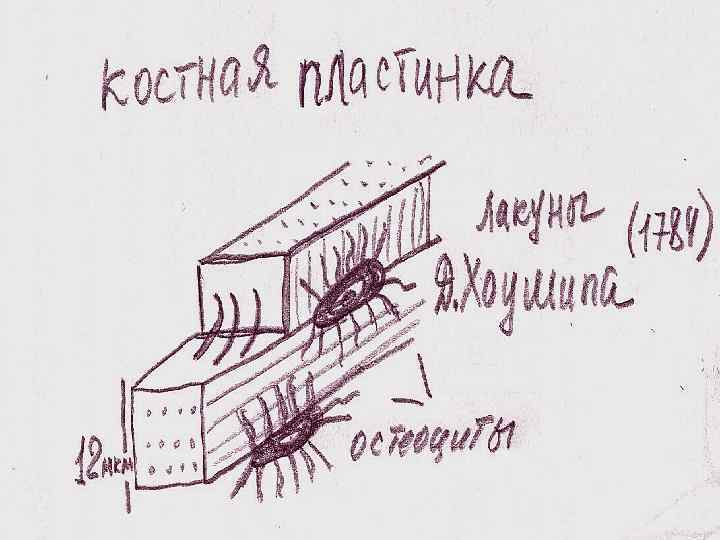 костная пластинка
лакуны (1784)
Д. Хоушипа
остеоциты
12 мкм